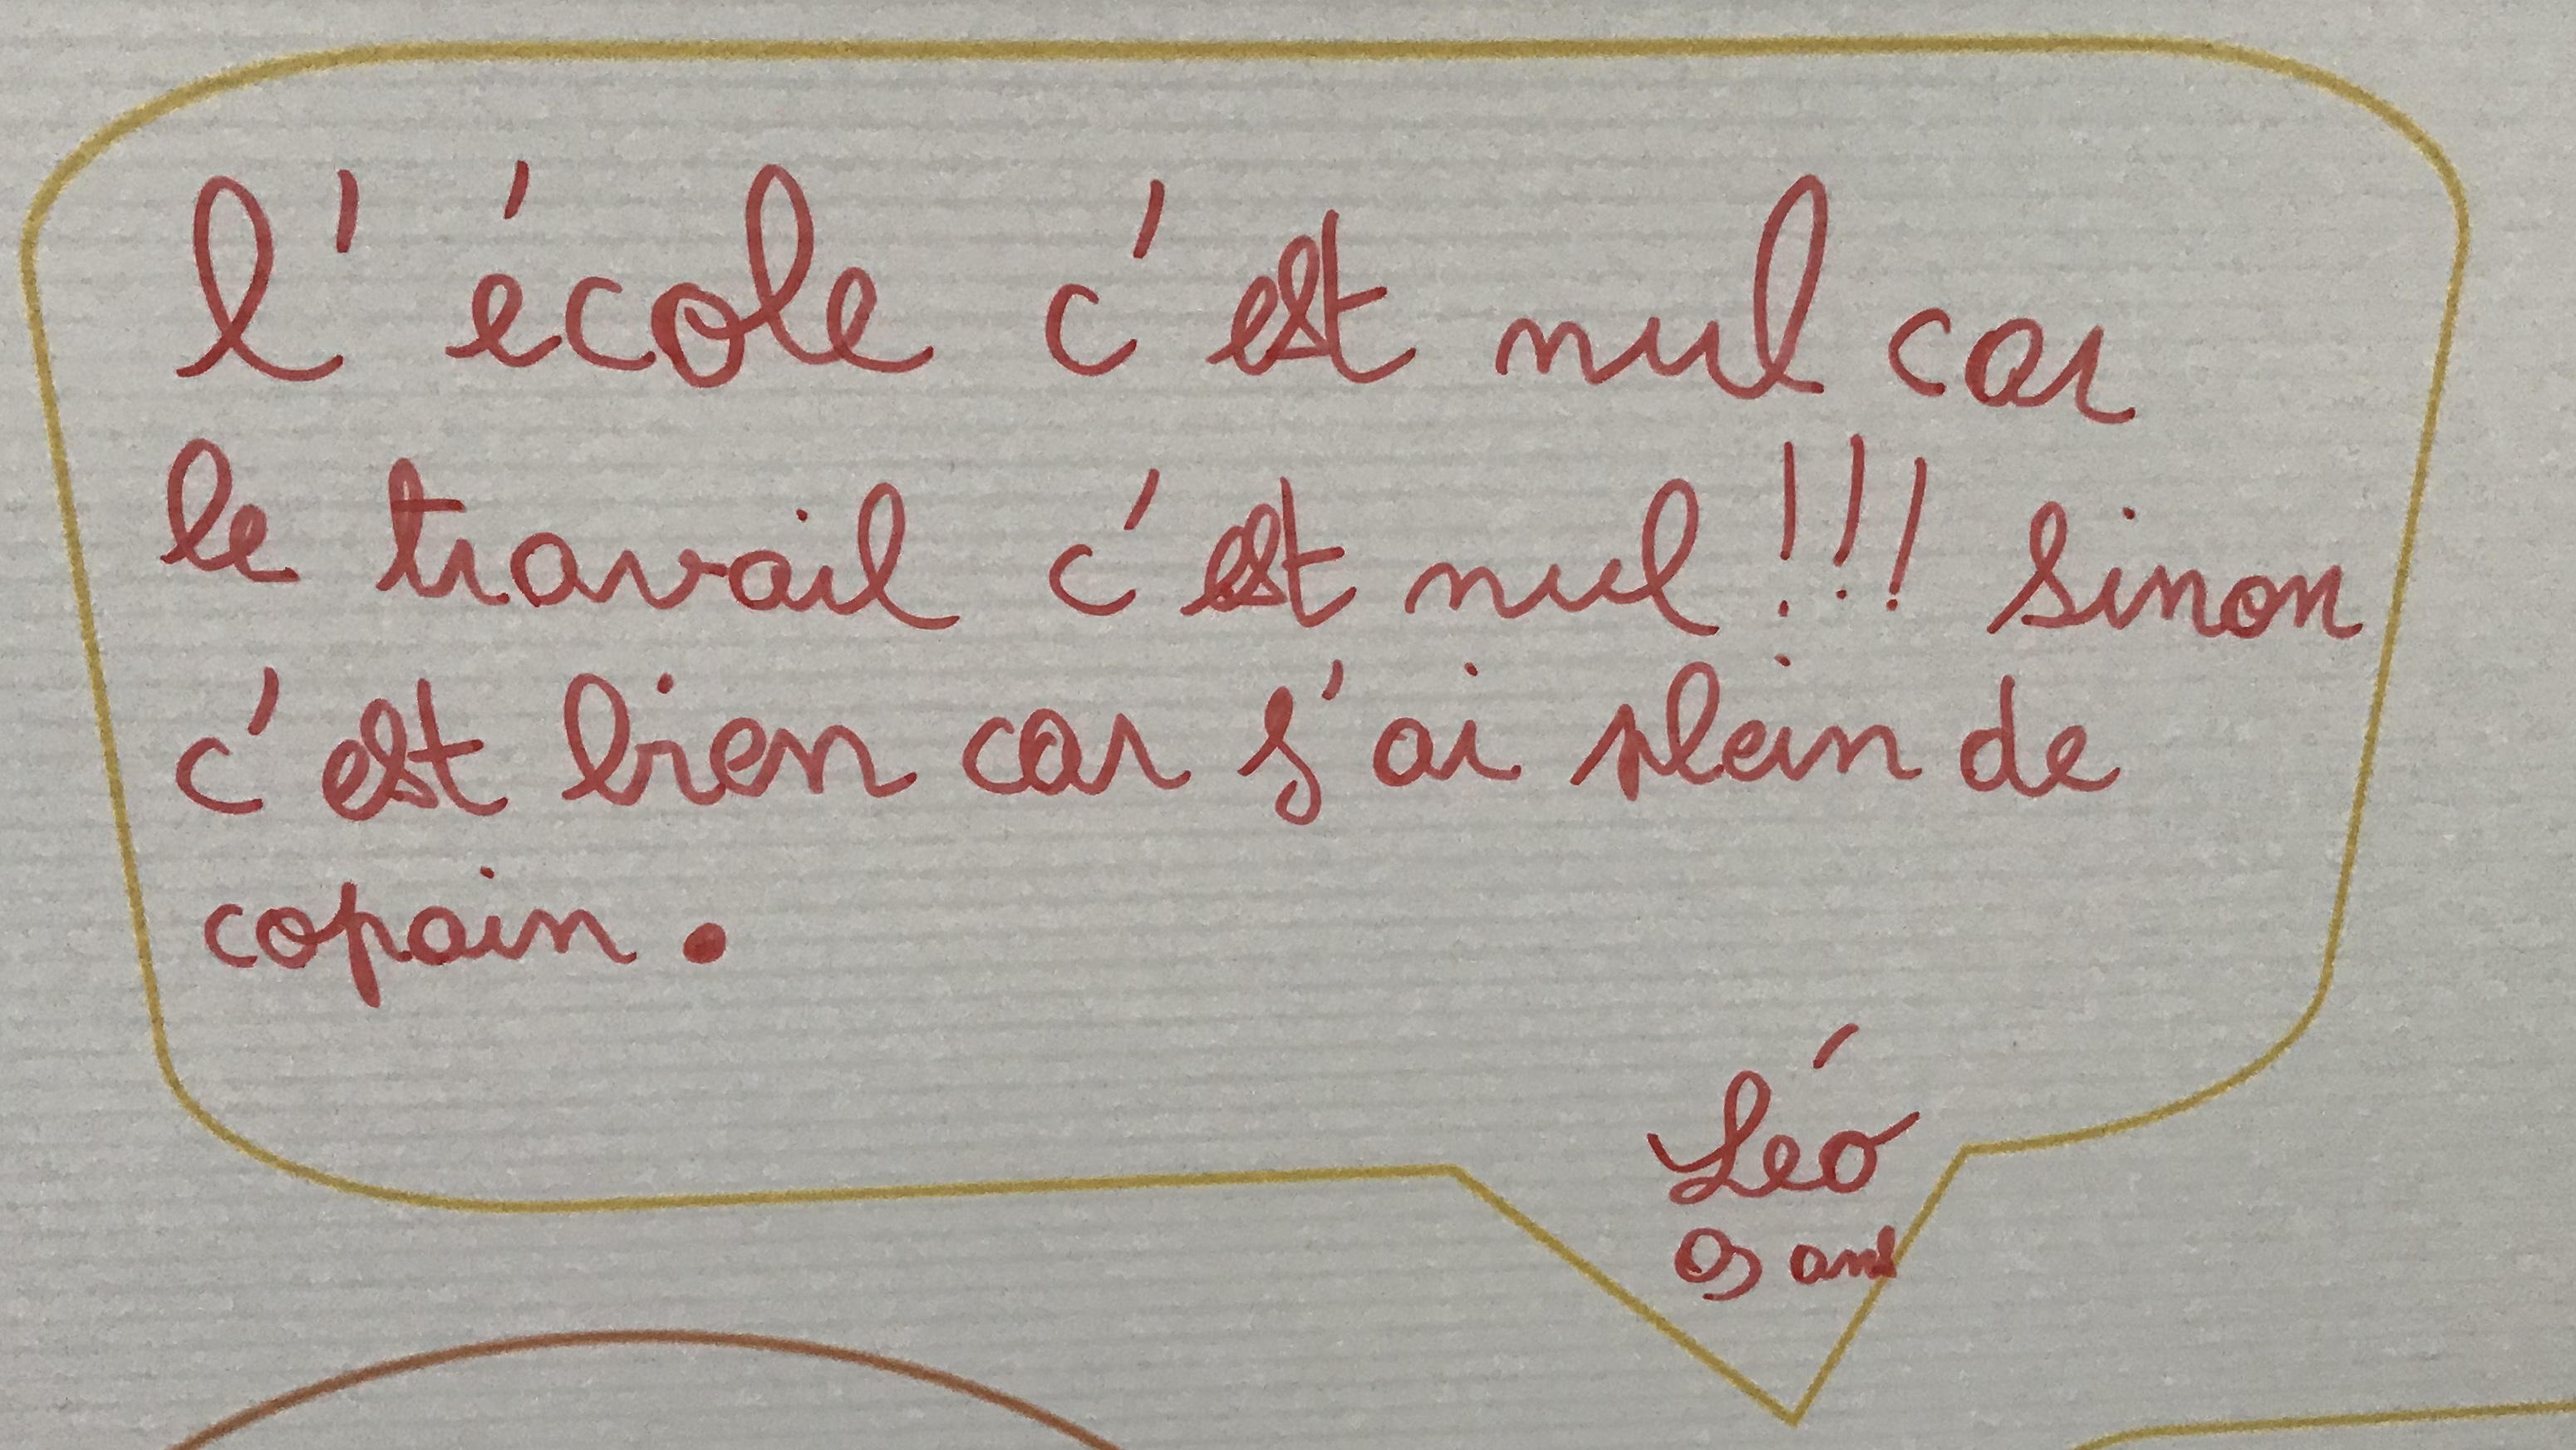 l'école c'est nul car
le travail c'est nul !!! sinon
c'est bien car j'ai plein de
copain.
Léo
9 ans